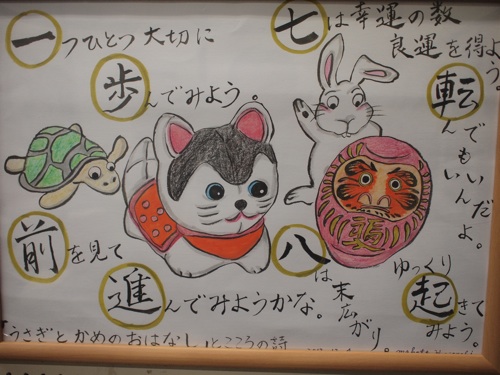 一つひとつ大切に
歩んでみよう。
前を見て
進んでみようかな。
七は幸運の数
良運を得よう。
転んでもいいんだよ。
八は末広がり。
ゆっくり
起きてみよう。
「うさぎとかめのおはなし」とこころの詩